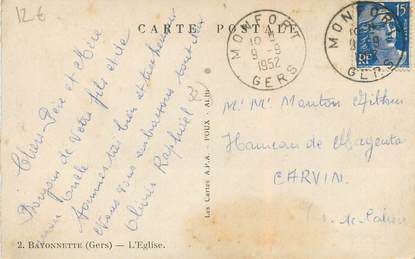 12€
CARTE POSTALE
MONFORT
10 H
9 - 9
1952
GERS
MONFORT
GERS
15F
RF
Chers Père et Mère
Bonjour de votre fils et de
mon oncle
sommes bien et
vous embrassons tout deux
Olivier Raphaël
Mr Mme
Hameau de Magenta
CARVIN
P. de Calais
Les Cartes A.P.A. - POUX - ALBI
2. BAYONNETTE (Gers) — L'Eglise.